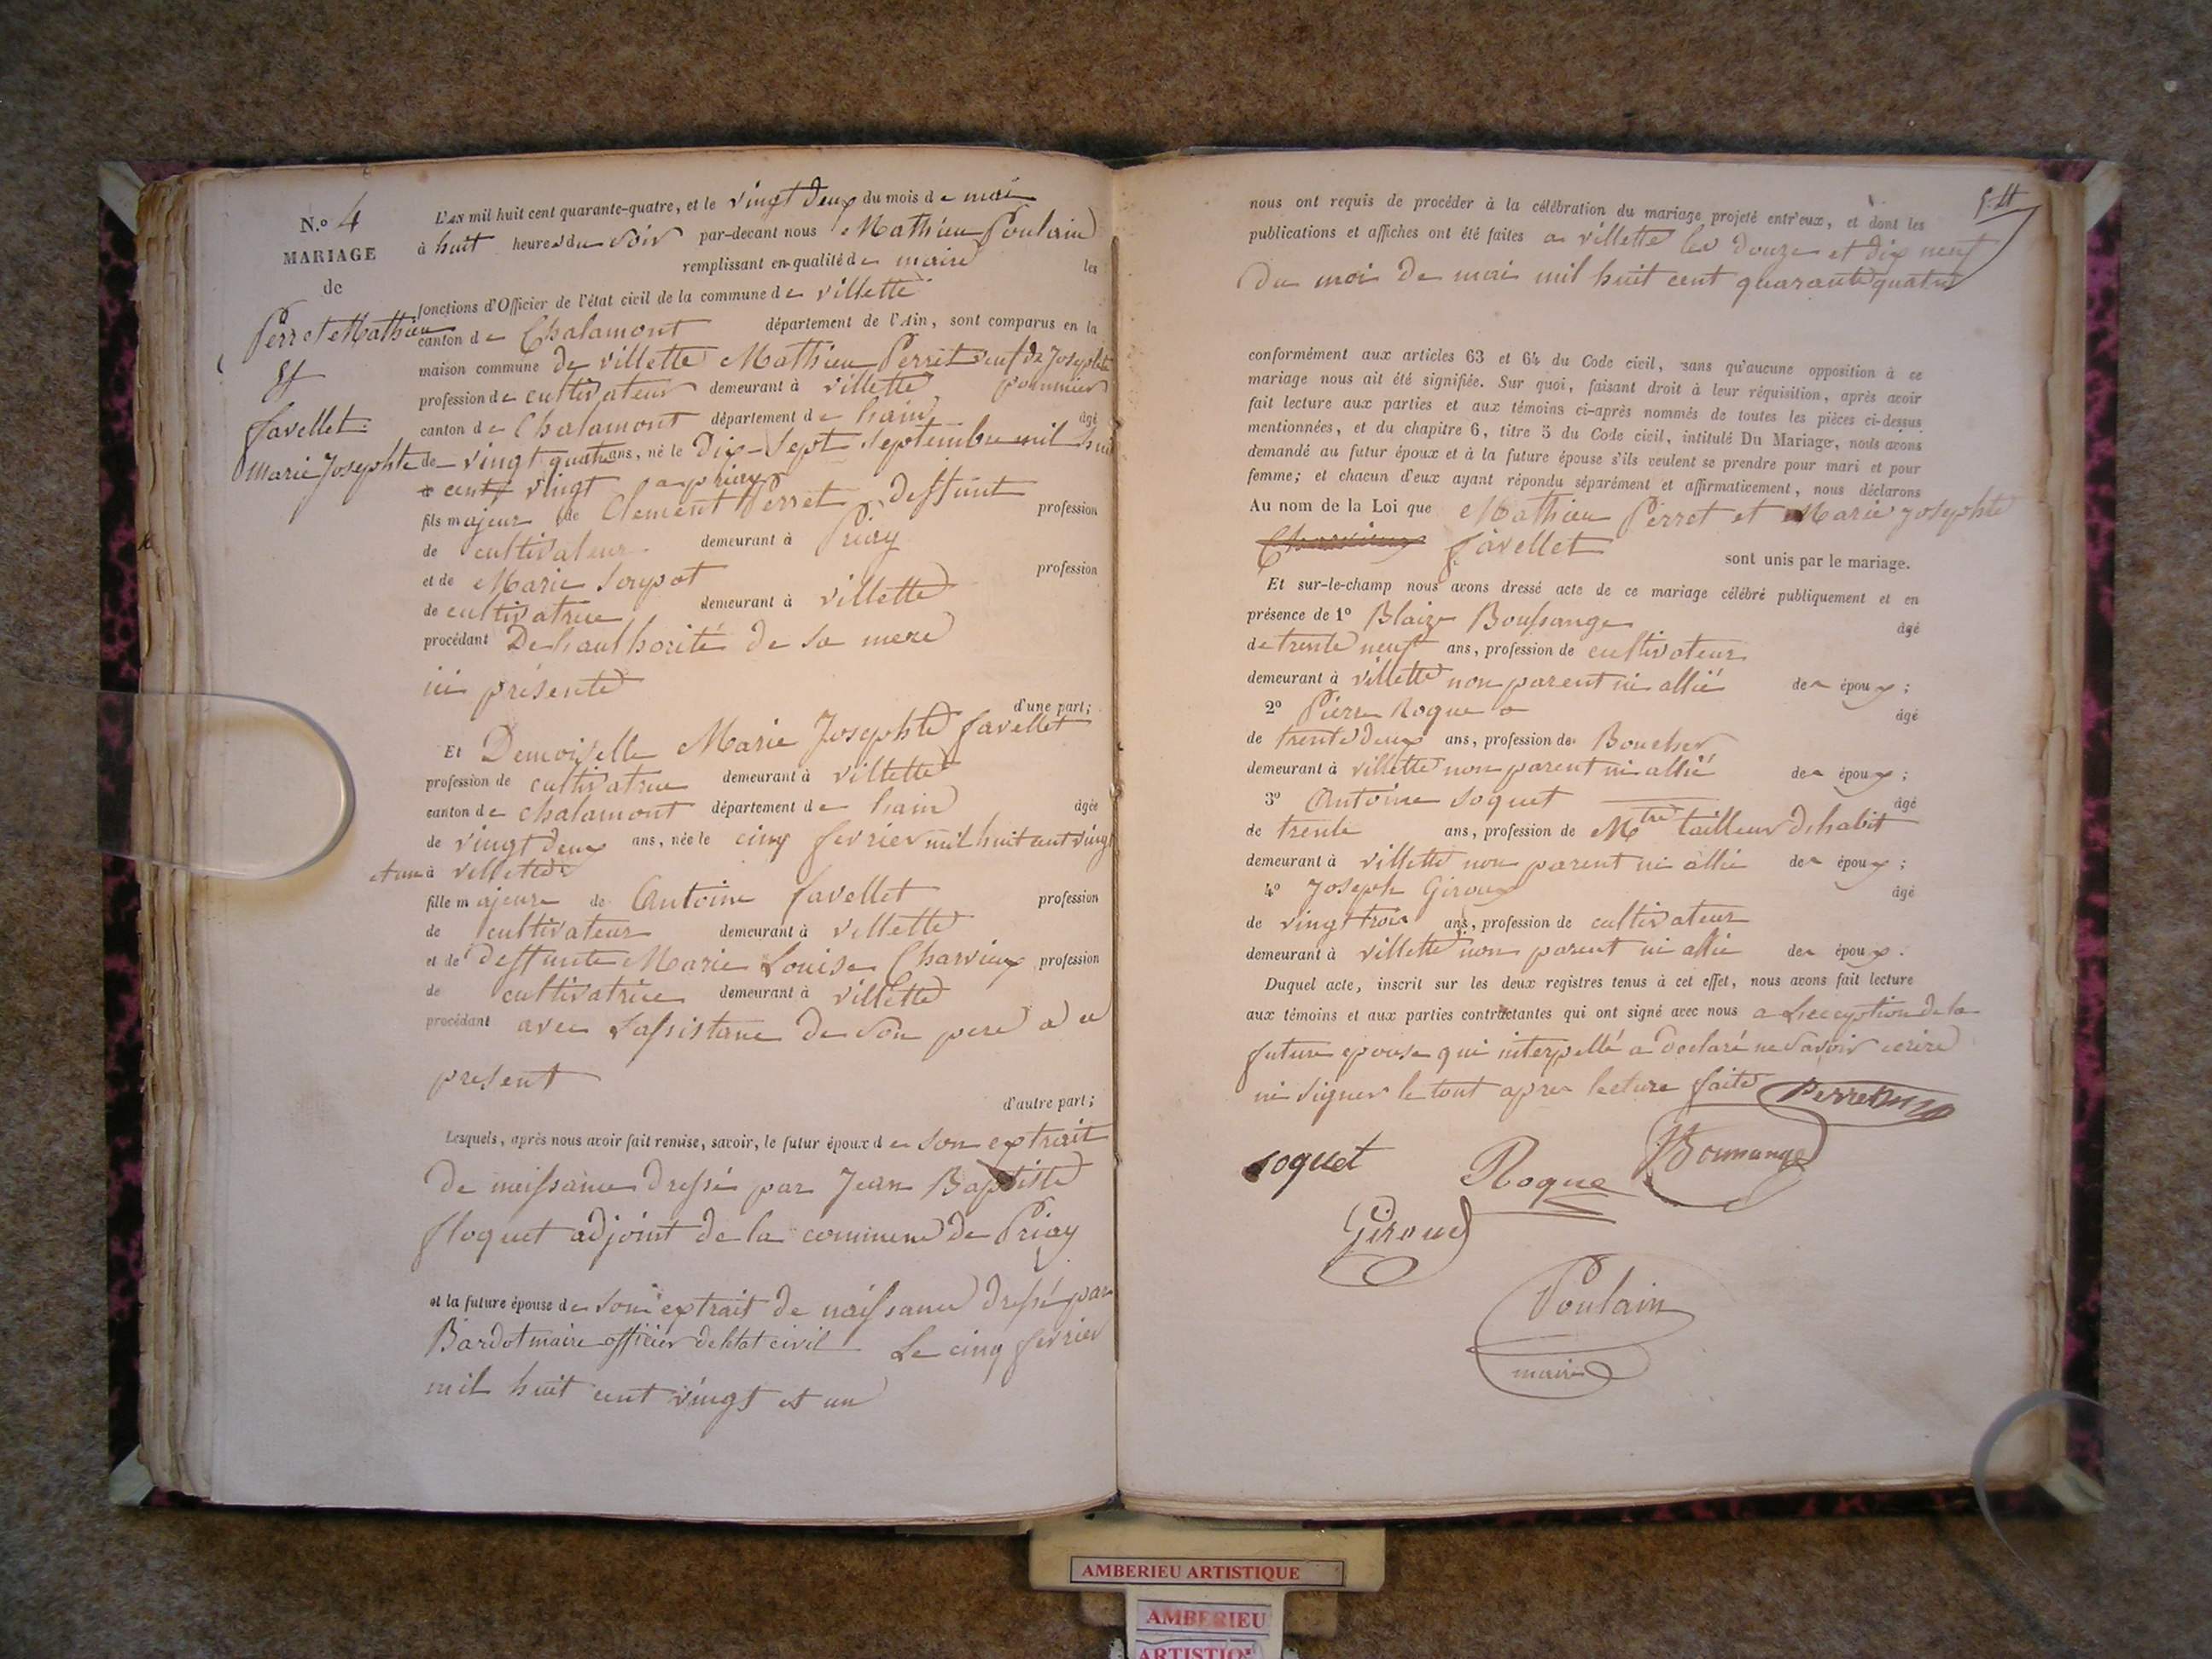 N.º 4
MARIAGE
de
Perret Mathieu
Et
favellet
Marie Josephte
L'AN mil huit cent quarante-quatre, et le vingt deux du mois de mai
à huit heures du soir par-devant nous Mathieu Poulain
remplissant en qualité de maire les
fonctions d'Officier de l'état civil de la commune de villette
canton de Chalamont département de l'Ain, sont comparus en la
maison commune de villette Mathieu Perret veuf de Josephte
pommier
profession de cultivateur demeurant à villette
canton de Chalamont département de hain âgé
de vingt quatre ans, né le Dix-Sept Septembre mil huit
à cent vingt a priay
fils majeur de Clement Perret deffunt profession
de cultivateur demeurant à Priay
et de Marie profession
de cultivatrice demeurant à villette
procédant De lauthorité de sa mere
ici présente
d'une part;
Et Demoiselle Marie Josephte favellet
profession de cultivatrice demeurant à villette
canton de chalamont département de hain âgée
de vingt deux ans, née le cinq fevrier mil huit cent vingt
et un à villette
fille majeure de Antoine favellet profession
de cultivateur demeurant à villette
et de deffunte Marie Louise Charvieux profession
de cultivatrice demeurant à villette
procédant avec Lassistance de son pere a ce
present
d'autre part;
Lesquels, après nous avoir fait remise, savoir, le futur époux de son extrait
de naissance dressé par Jean Baptiste
floquet adjoint de la commune de Priay
et la future épouse de son extrait de naissance dressé par
Bardot maire officier de letat civil Le cinq fevrier
mil huit cent vingt et un
nous ont requis de procéder à la célébration du mariage projeté entr'eux, et dont les
publications et affiches ont été faites a villette les douze et dix neuf
du moi de mai mil huit cent quarante quatre
conformément aux articles 63 et 64 du Code civil, sans qu'aucune opposition à ce
mariage nous ait été signifiée. Sur quoi, faisant droit à leur réquisition, après avoir
fait lecture aux parties et aux témoins ci-après nommés de toutes les pièces ci-dessus
mentionnées, et du chapitre 6, titre 5 du Code civil, intitulé Du Mariage, nous avons
demandé au futur époux et à la future épouse s'ils veulent se prendre pour mari et pour
femme; et chacun d'eux ayant répondu séparément et affirmativement, nous déclarons
Au nom de la Loi que Mathieu Perret et Marie Josephte
Charvieux favellet sont unis par le mariage.
Et sur-le-champ nous avons dressé acte de ce mariage célébré publiquement et en
présence de 1º Blaize Boussange âgé
de trente neuf ans, profession de cultivateur
demeurant à villette non parent ni allié des époux;
2º Pierre Roque âgé
de trente deux ans, profession de Boucher
demeurant à villette non parent ni allié des époux;
3º Antoine soquet âgé
de trente ans, profession de Mtre tailleur dhabit
demeurant à villette non parent ni allié des époux;
4º Joseph Giroux âgé
de vingt trois ans, profession de cultivateur
demeurant à villette non parent ni allié des époux.
Duquel acte, inscrit sur les deux registres tenus à cet effet, nous avons fait lecture
aux témoins et aux parties contractantes qui ont signé avec nous a Lexception de la
future epouse qui interpellé a declaré ne savoir ecrire
ni signer le tout apres lecture faite Perret
soquet Roque
Giroud
Poulain
maire
AMBERIEU ARTISTIQUE
AMBERIEU
ARTISTIQ